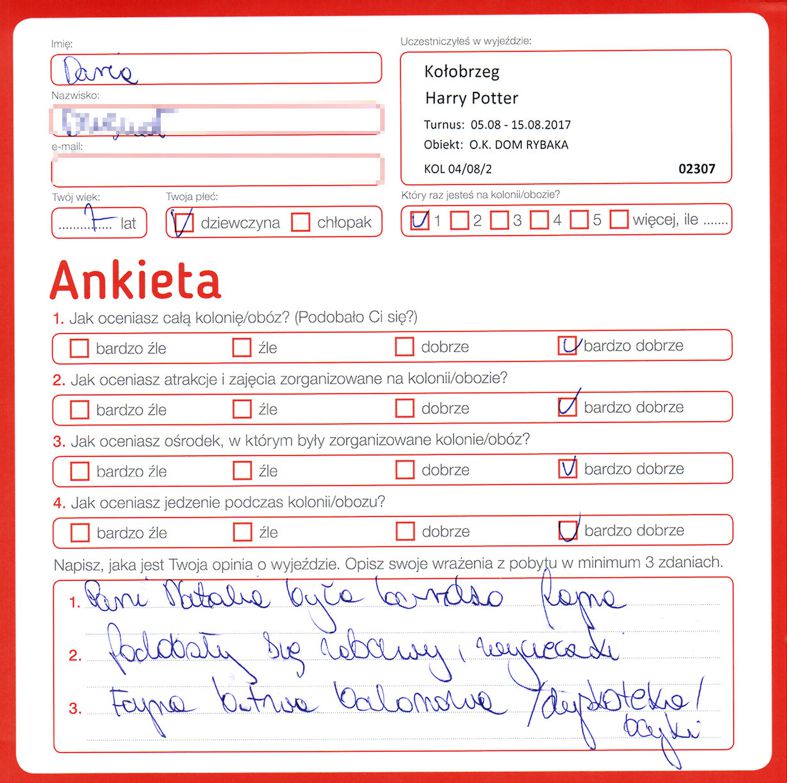 Imię:
Daria
Nazwisko:
e-mail:
Twój wiek:
7 lat
Twoja płeć:
dziewczyna chłopak
Uczestniczyłeś w wyjeździe:
Kołobrzeg
Harry Potter
Turnus: 05.08 - 15.08.2017
Obiekt: O.K. DOM RYBAKA
KOL 04/08/2 02307
Który raz jesteś na kolonii/obozie?
1 2 3 4 5 więcej, ile .......
Ankieta
1. Jak oceniasz całą kolonię/obóz? (Podobało Ci się?)
bardzo źle źle dobrze bardzo dobrze
2. Jak oceniasz atrakcje i zajęcia zorganizowane na kolonii/obozie?
bardzo źle źle dobrze bardzo dobrze
3. Jak oceniasz ośrodek, w którym były zorganizowane kolonie/obóz?
bardzo źle źle dobrze bardzo dobrze
4. Jak oceniasz jedzenie podczas kolonii/obozu?
bardzo źle źle dobrze bardzo dobrze
Napisz, jaka jest Twoja opinia o wyjeździe. Opisz swoje wrażenia z pobytu w minimum 3 zdaniach.
1. Pani Natalia była bardzo fajna
2. Podobały się zabawy i wycieczki
3. Fajna bitwa balonowa /dyskoteka/
bajki